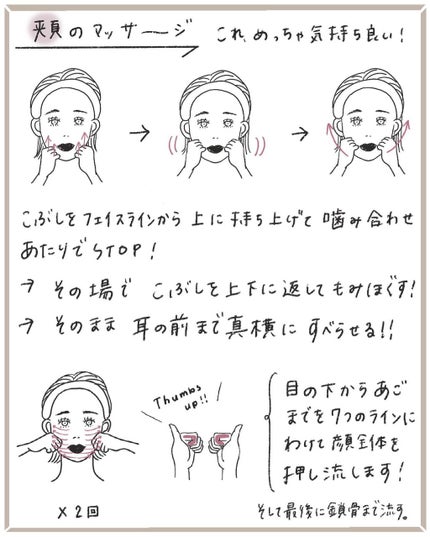 頬のマッサージ
これ、めっちゃ気持ち良い！
こぶしをフェイスラインから上に持ち上げて噛み合わせ
あたりでSTOP！
→ その場で こぶしを上下に返してもみほぐす！
→ そのまま 耳の前まで真横に すべらせる!!
Thumbs
up!!
目の下からあご
までを7つのラインに
わけて顔全体を
押し流します！
×2回
そして最後に鎖骨まで流す。